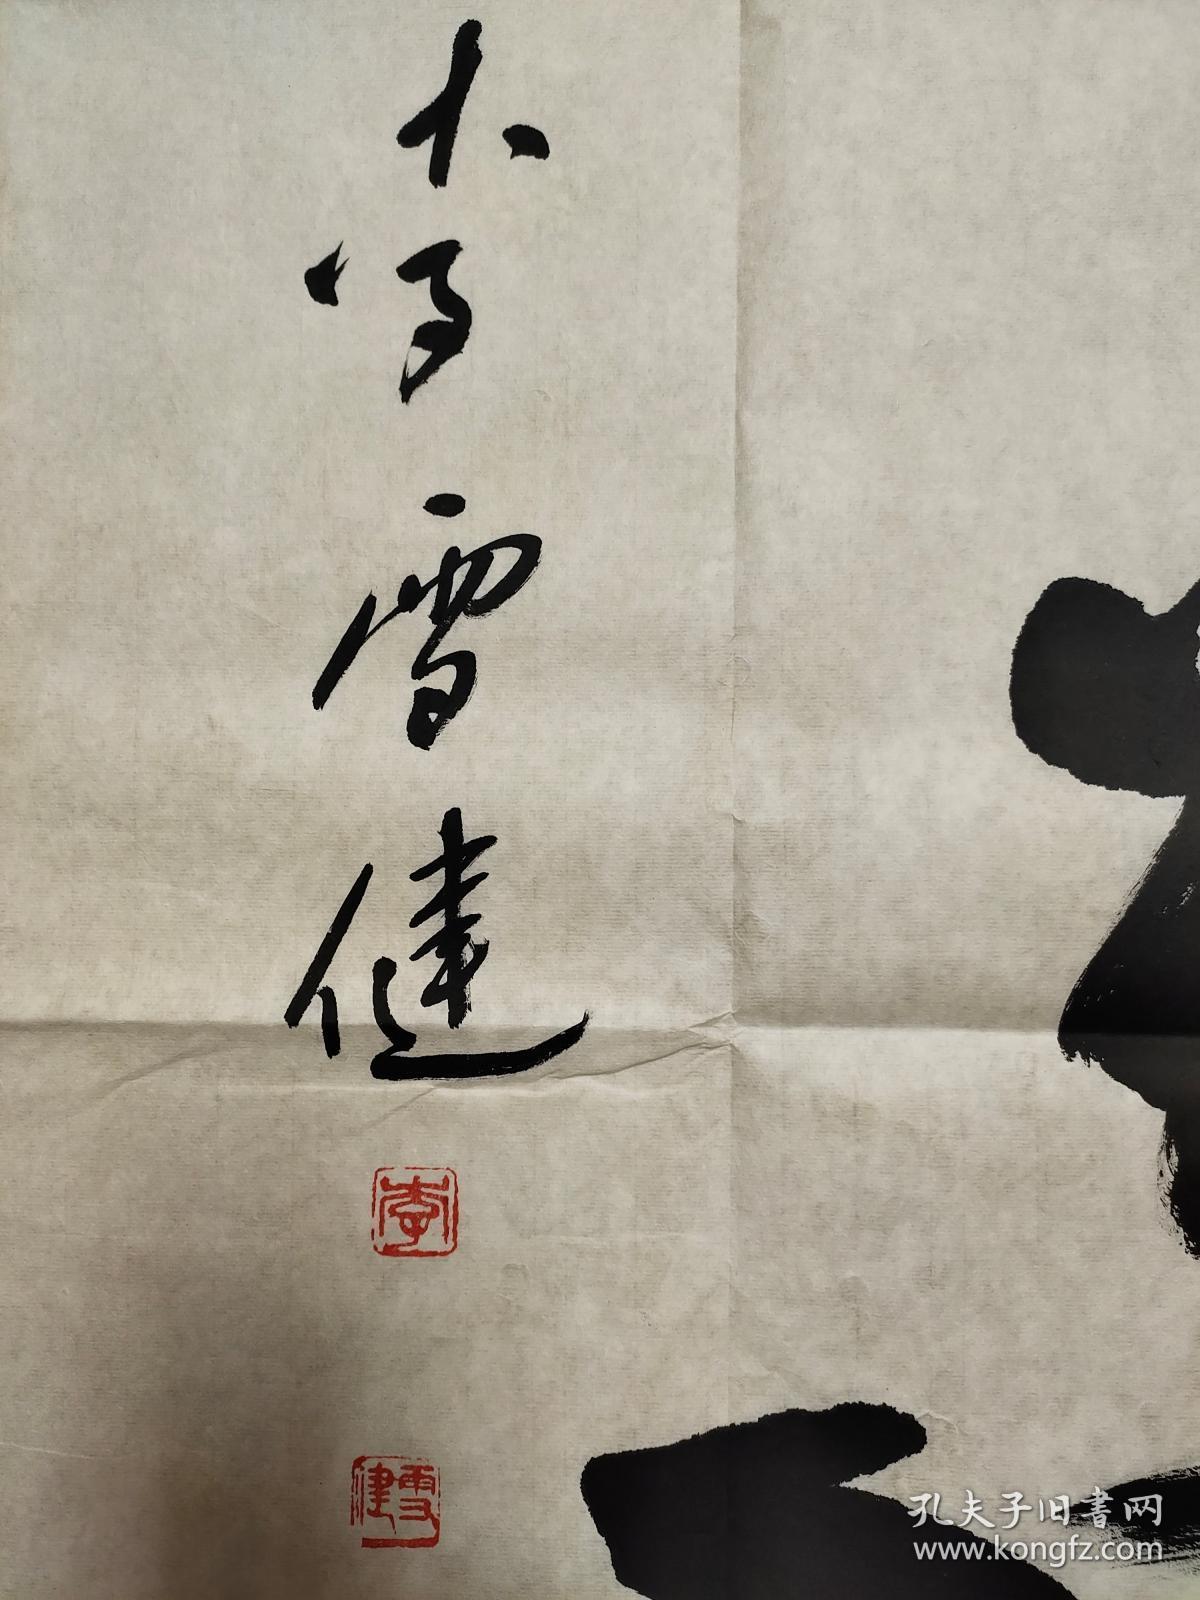 李雪健
李
雪健
孔夫子旧书网
www.kongfz.com